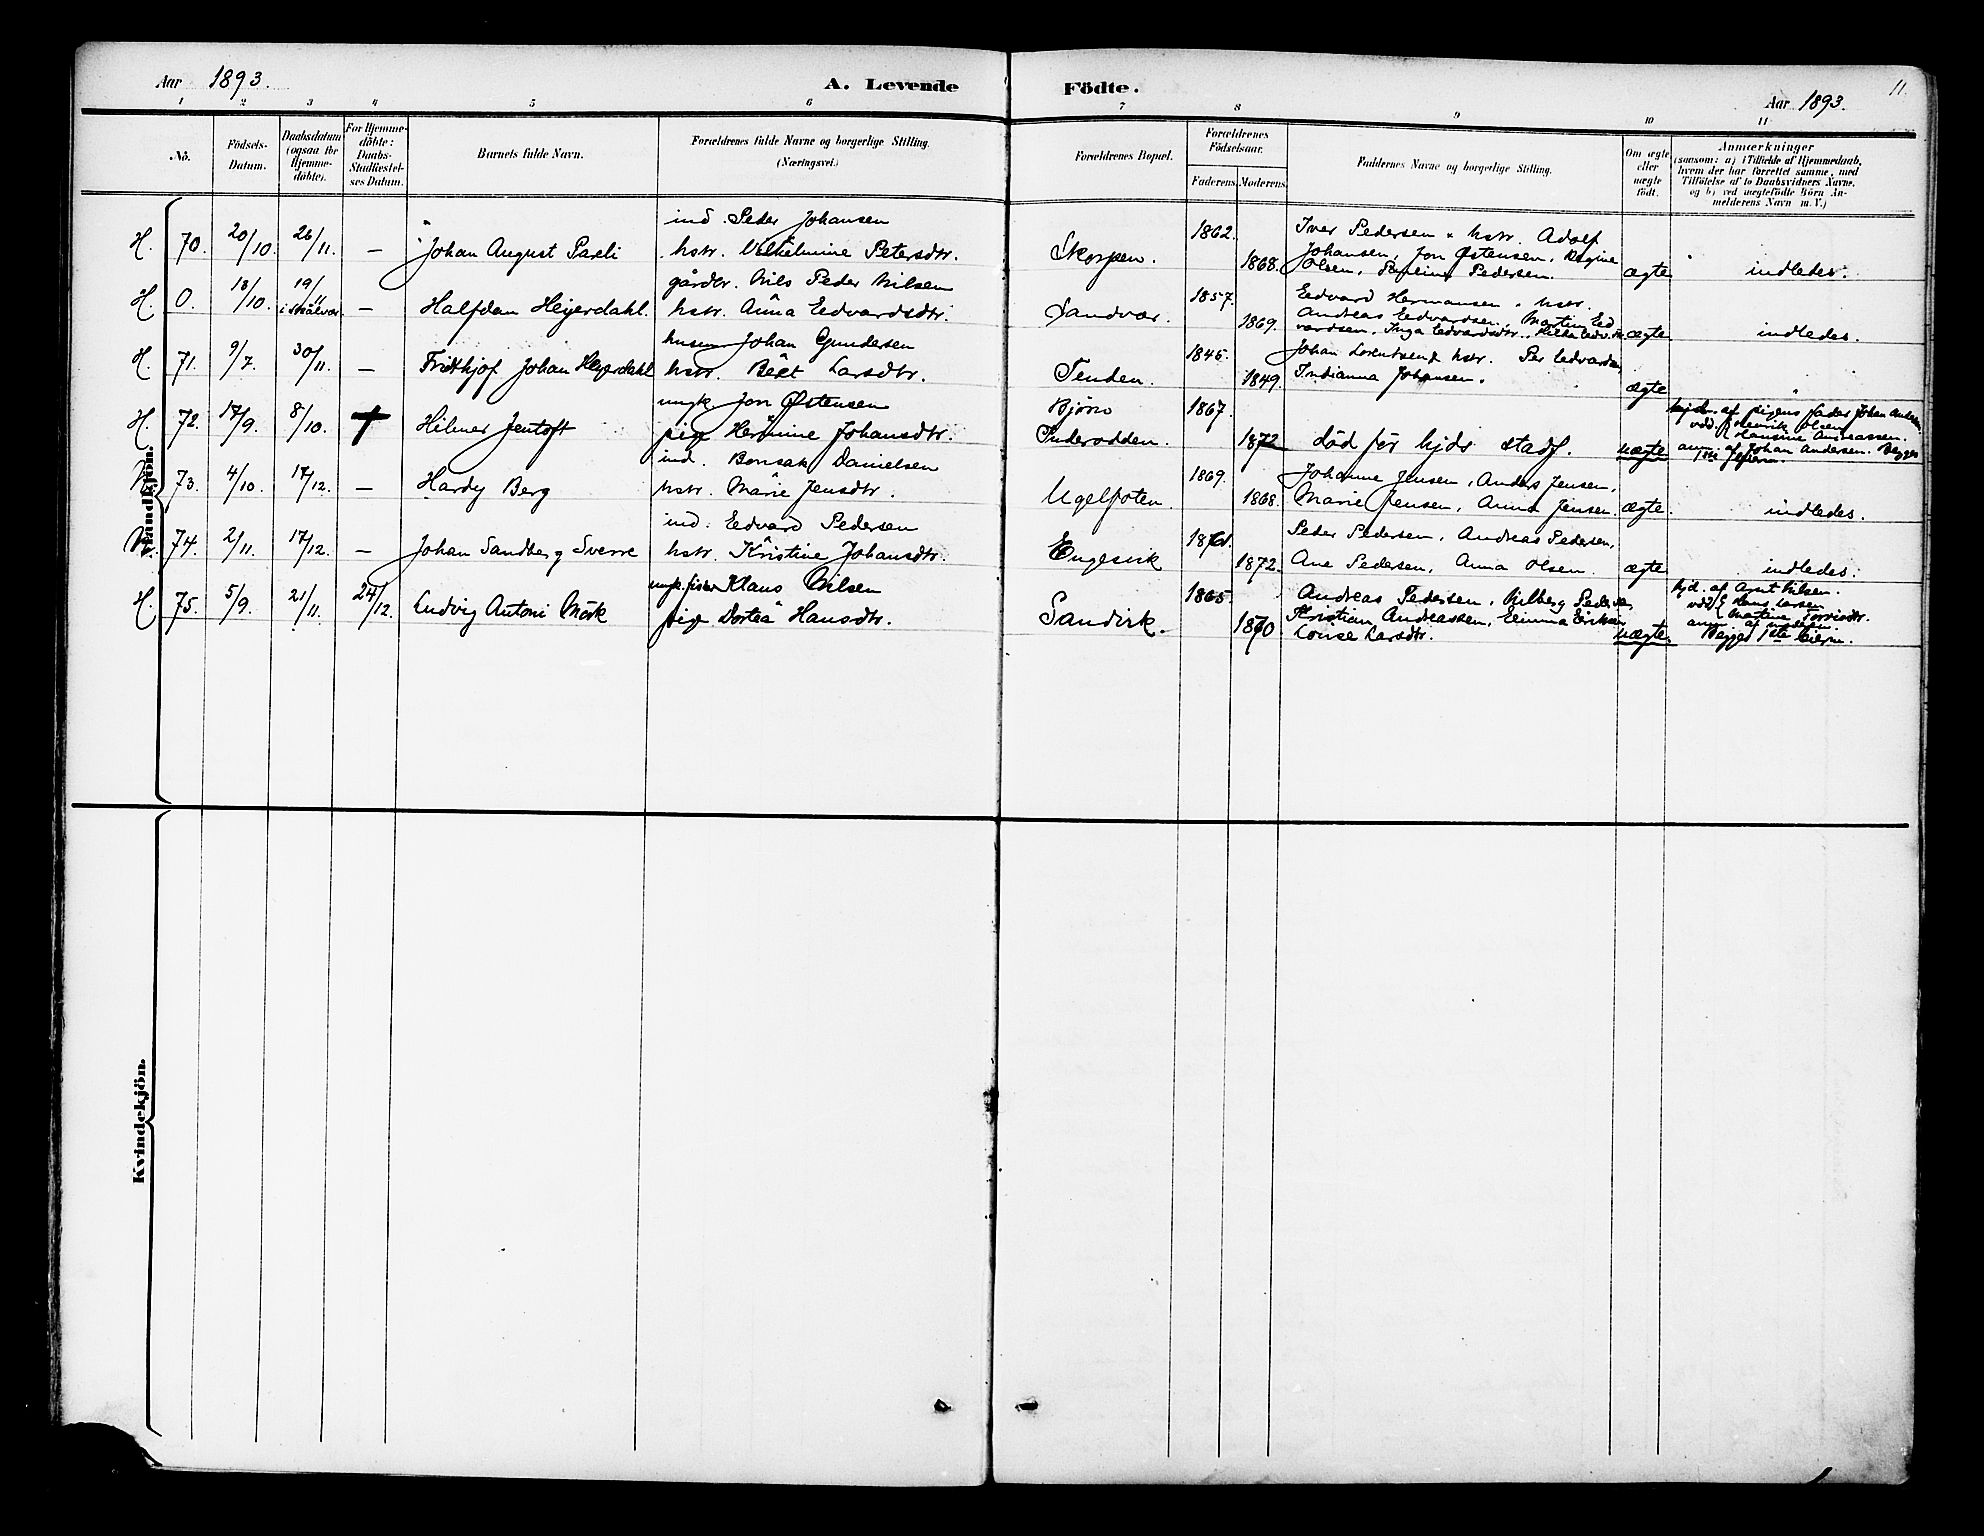 Aar 1893.
A. Levende Födte.
11.
Aar 1893.
1 2 3 4 5 6 7 8 9 10 11
No.
Födsels-Datum.
Daabsdatum (ogsaa for Hjemme-döbte).
For Hjemme-döbte: Daabs-Stadfæstel-ses Datum.
Barnets fulde Navn.
Forældrenes fulde Navne og borgerlige Stilling. (Næringsvei.)
Forældrenes Bopæl.
Forældrenes Födselsaar.
Faderens. Moderens.
Faddernes Navne og borgerlige Stilling.
Om ægte eller uægte födt.
Anmærkninger (saasom: a) i Tilfælde af Hjemmedaab, hvem der har forrettet samme, med Tilföielse af to Daabsvidners Navne, og b) ved uægtefödte Börn An-melderens Navn m. V.)
Mandkjön.
H. 70. 20/10. 26/11. — Johan August Pareli
ind. Peder Johansen
hstr. Vilhelmine Petersdtr.
Skorpen. 1862. 1868.
Iver Pedersen & hstr. Adolf
Johansen, Jon Østensen, Regine
Olsen, Pedersen.
ægte indledes.
H. O. 18/10. 19/11 i — Halfdan Heyerdahl.
gårdbr. Nils Peder Nilsen
hstr. Anna Eedvardsdtr.
Sandvær. 1857. 1869.
Eedvard Hermansen & hstr.
Andreas Eedvardsen, Martin Eed
vardsen, Inga Eedvardsdtr.,
ægte indledes.
H. 71. 9/7. 30/11. — Fridthjof Johan Heyerdahl
husm Johan Gundersen
hstr. Berit Larsdtr.
Tenden. 1845. 1849.
Johan Lorentsen & hstr. Per Eedvardsen
Indianna Johansen.
ægte "
H. 72. 17/9. 8/10. † Hilmer Jentoft
ungk Jon Østensen
pige Hermine Johansdtr.
Bjørn
Inderodden. 1867. 1872
død før hjds stadf.
uægte
hjdr. af pigens fader Johan Andersen.
vdd. Henrik Olsen
Hansine Andreassen.
anm. af Johan Andersen. Begges
1ste leierm.
N. 73. 4/10. 17/12. — Hardy Berg
ind. Bonsak Danielsen
hstr. Marie Jensdtr.
Ugelfoten. 1869. 1868.
Johanne Jensen, Anders Jensen,
Marie Jensen, Anna Jensen.
ægte. indledes.
N. 74. 2/11. 17/12. — Johan Sandberg Sverre
ind. Eedvard Pedersen
hstr. Kristine Johansdtr.
Engesvik 1872.
Peder Pedersen, Andreas Pedersen,
Ane Pedersen, Anna Olsen.
ægte indledes.
H. 75. 5/9. 21/11. 24/12. Ludvig Antoni Mörk
ungk. fisker Klaus Nilsen
pige Dortea Hansdtr.
Sandvik. 1865. 1870
Andreas Pedersen, Nilberg Pedersen,
Kristian Andreassen, Emma Eriksen
Lovise Larsdtr.
uægte.
hjd. af Arnt Nilsen.
vdd. Hans Larsen
Martine
anm. af moderen.
Begges 1ste leierm.
Kvindekjön.